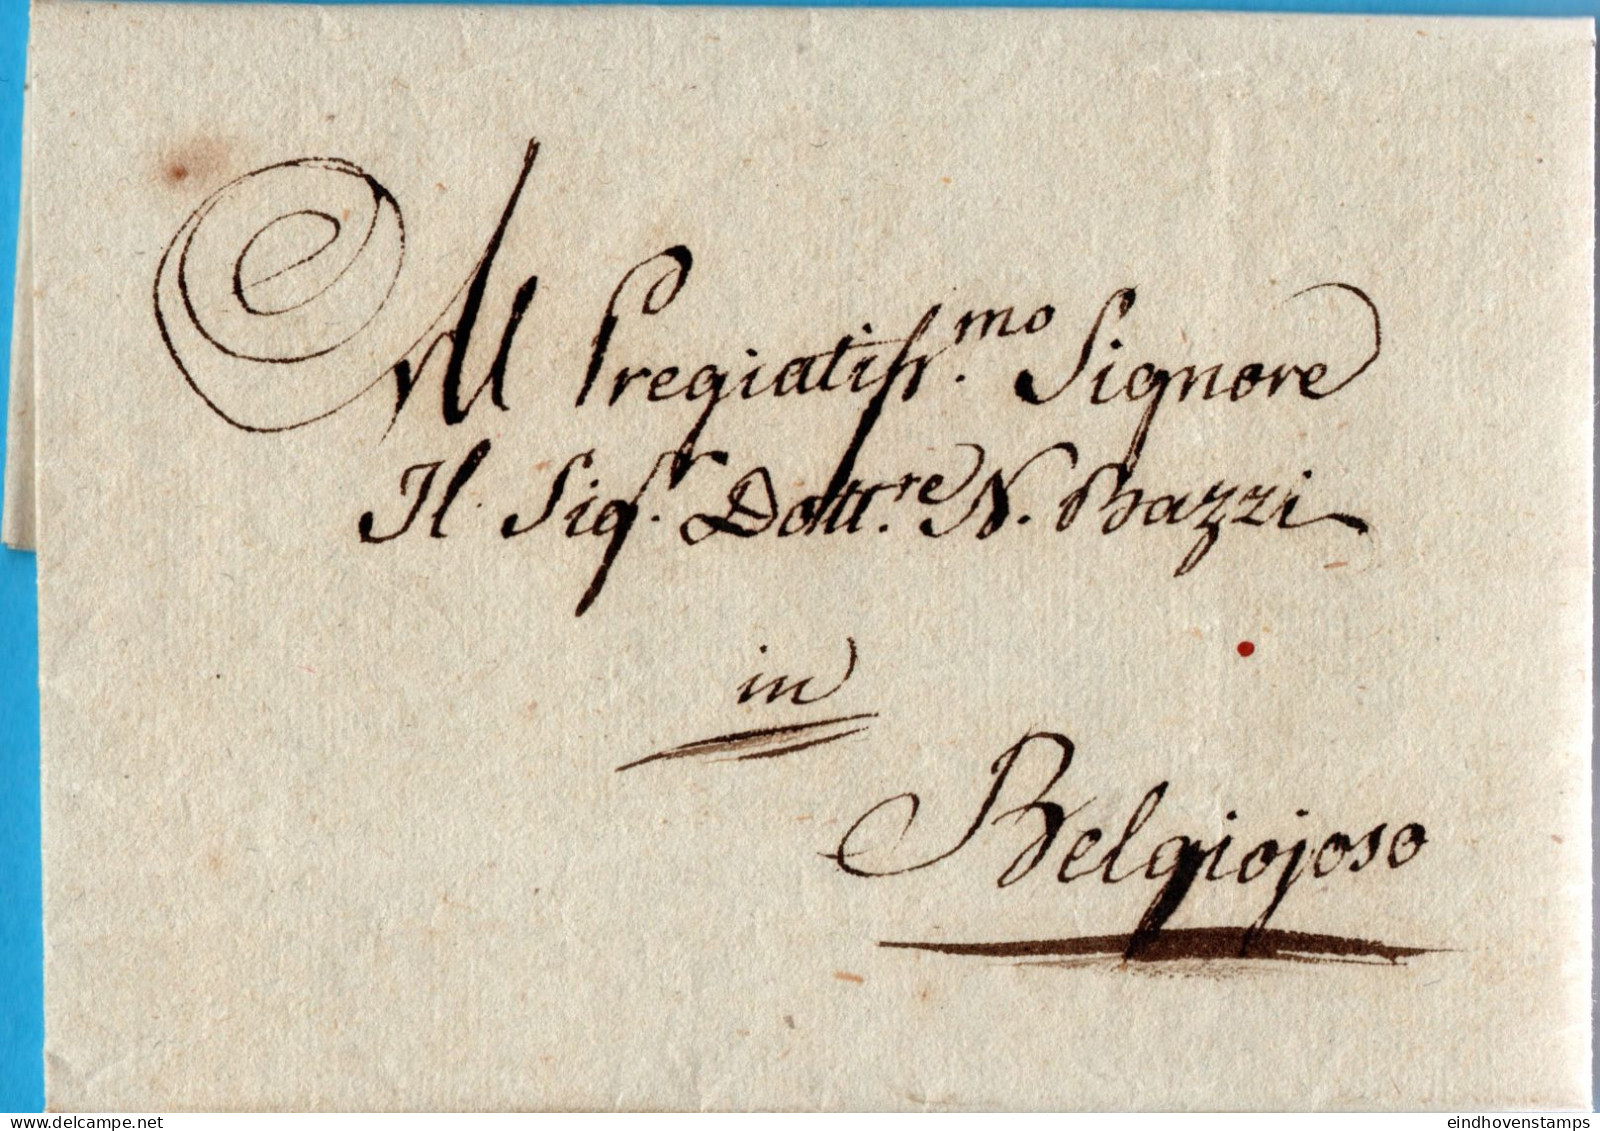 Al Pregiatiss.mo Signore
Il Sigr. Dott.re N. Bazzi
in
Belgiojoso
delcampe.net
eindhovenstamps